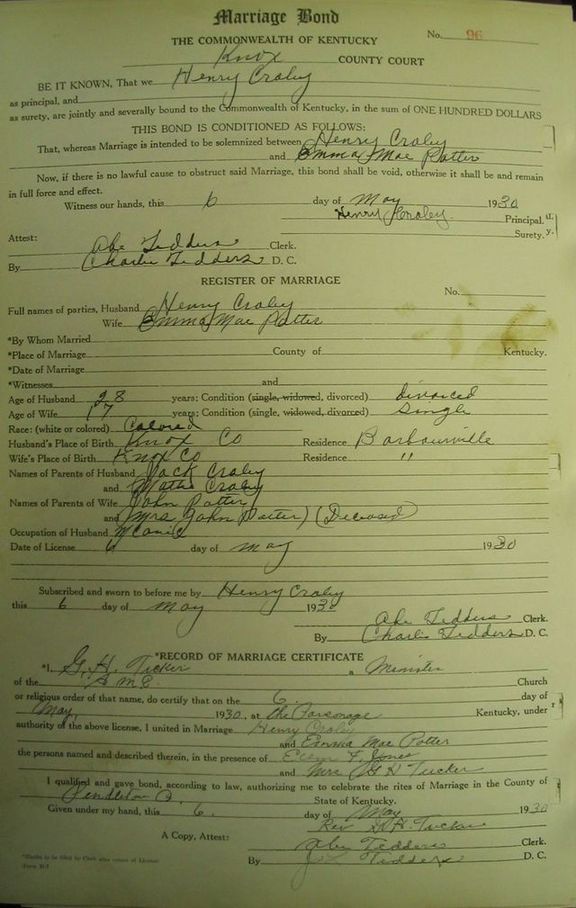 Marriage Bond
THE COMMONWEALTH OF KENTUCKY
No. 96
Knox COUNTY COURT
BE IT KNOWN, That we Henry Croley
as principal, and
as surety, are jointly and severally bound to the Commonwealth of Kentucky, in the sum of ONE HUNDRED DOLLARS
THIS BOND IS CONDITIONED AS FOLLOWS:
That, whereas Marriage is intended to be solemnized between Henry Croley
and Emma Mae Potter
Now, if there is no lawful cause to obstruct said Marriage, this bond shall be void, otherwise it shall be and remain
in full force and effect.
Witness our hands, this 6 day of May 1930
Henry Croley Principal.
Surety.
Attest: Abe Tedders Clerk.
By Charlie Tedders D. C.
REGISTER OF MARRIAGE
No.
Full names of parties, Husband Henry Croley
Wife Emma Mae Potter
*By Whom Married
*Place of Marriage County of Kentucky.
*Date of Marriage
*Witnesses and
Age of Husband 28 years; Condition (single, widowed, divorced) divorced
Age of Wife 17 years; Condition (single, widowed, divorced) Single
Race: (white or colored) Colored
Husband's Place of Birth Knox Co Residence Barbourville
Wife's Place of Birth Knox Co Residence "
Names of Parents of Husband Jack Croley
and Croley
Names of Parents of Wife John Potter
and (Mrs John Potter) (Deceased)
Occupation of Husband
Date of License 6 day of May 1930
Subscribed and sworn to before me by Henry Croley
this 6 day of May 1930
Abe Tedders Clerk.
By Charlie Tedders D. C.
*RECORD OF MARRIAGE CERTIFICATE
*I, G. H. Tucker a Minister
of the Church
or religious order of that name, do certify that on the 6 day of
May, 1930, at the Parsonage Kentucky, under
authority of the above license, I united in Marriage Henry Croley
and Emma Mae Potter
the persons named and described therein, in the presence of Jones
and Mrs G H Tucker
I qualified and gave bond, according to law, authorizing me to celebrate the rites of Marriage in the County of
Pendleton State of Kentucky.
Given under my hand, this 6. day of May 1930
Rev G. H. Tucker
A Copy, Attest: Abe Tedders Clerk.
By Tedders D. C.